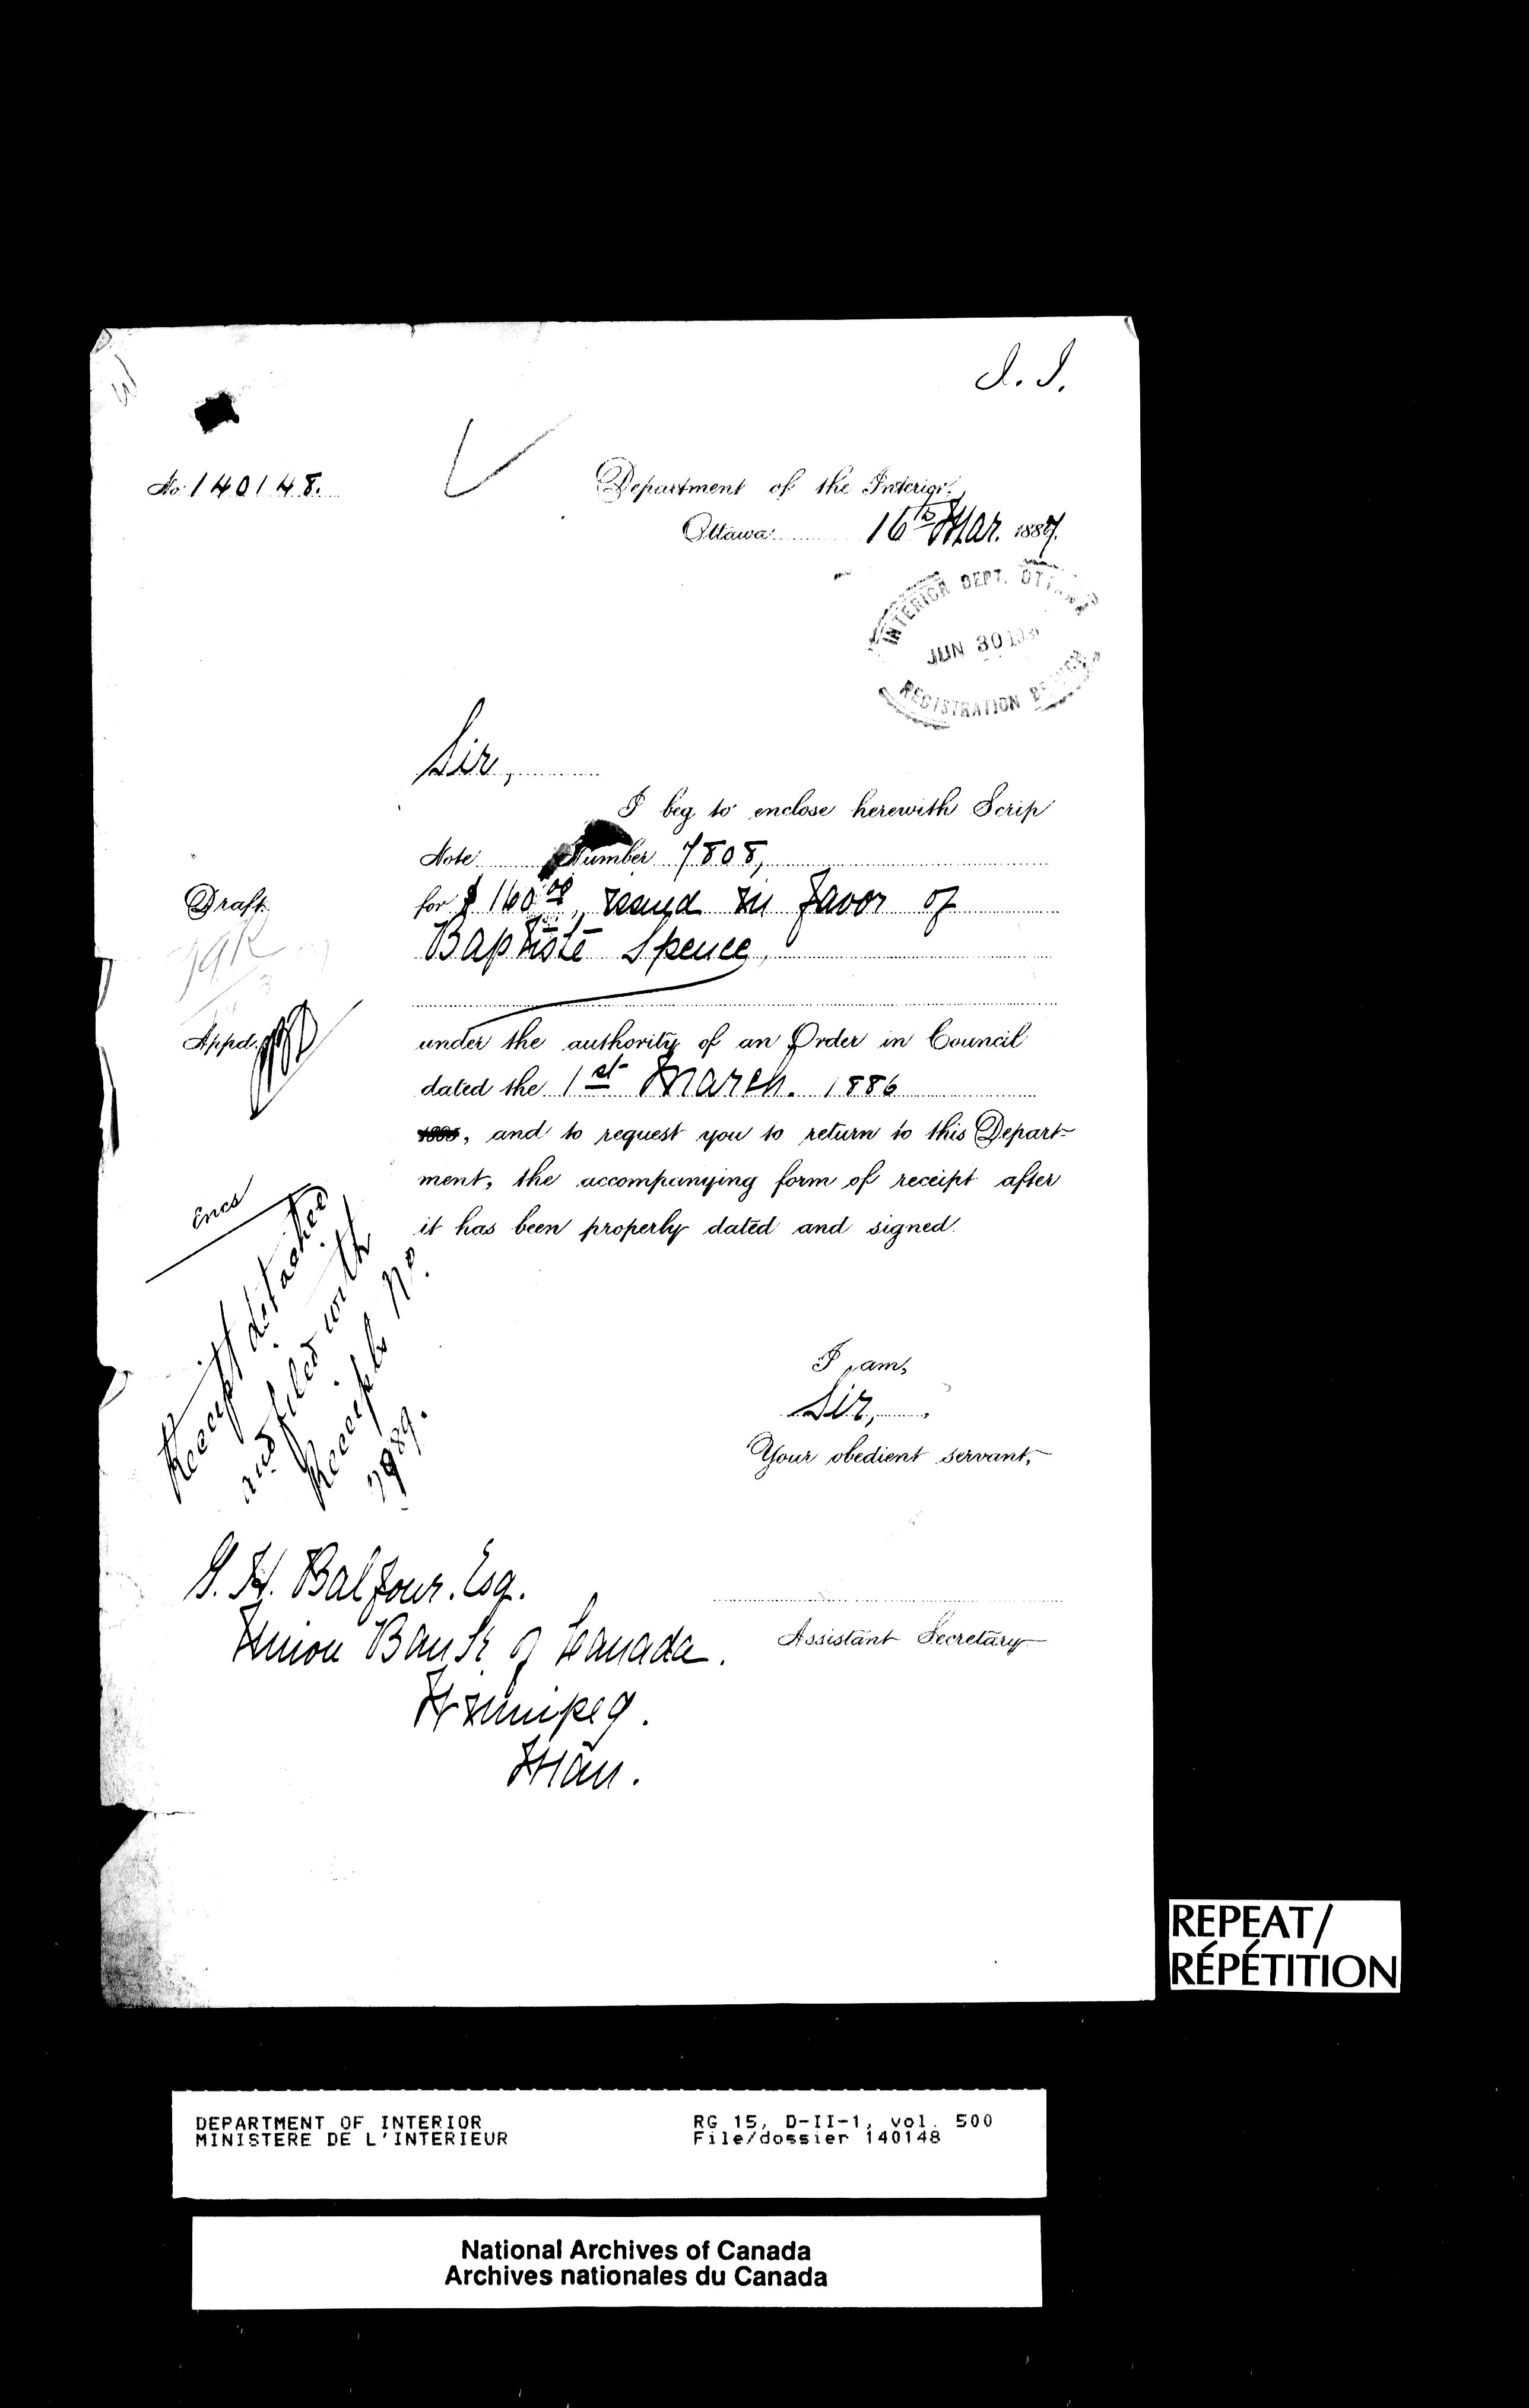 J. J.
No. 140148.
Department of the Interior.
Ottawa 16th Mar. 1887.
INTERIOR DEPT. OTTAWA
JUN 30
REGISTRATION
Sir,
I beg to enclose herewith Scrip
Note Number 7808,
Draft
for $160.00, issued in favor of
Baptiste Spence,
Appd.
under the authority of an Order in Council
dated the 1st March. 1886
1885, and to request you to return to this Depart-
ment, the accompanying form of receipt after
it has been properly dated and signed.
Encs
Receipt detached
and filed with
Receipts No.
7989.
I am,
Sir,
Your obedient servant,
G. H. Balfour. Esq.
Union Bank of Canada.
Assistant Secretary
Winnipeg.
Man.
REPEAT/
RÉPÉTITION
DEPARTMENT OF INTERIOR
MINISTERE DE L'INTERIEUR
RG 15, D-II-1, vol. 500
File/dossier 140148
National Archives of Canada
Archives nationales du Canada